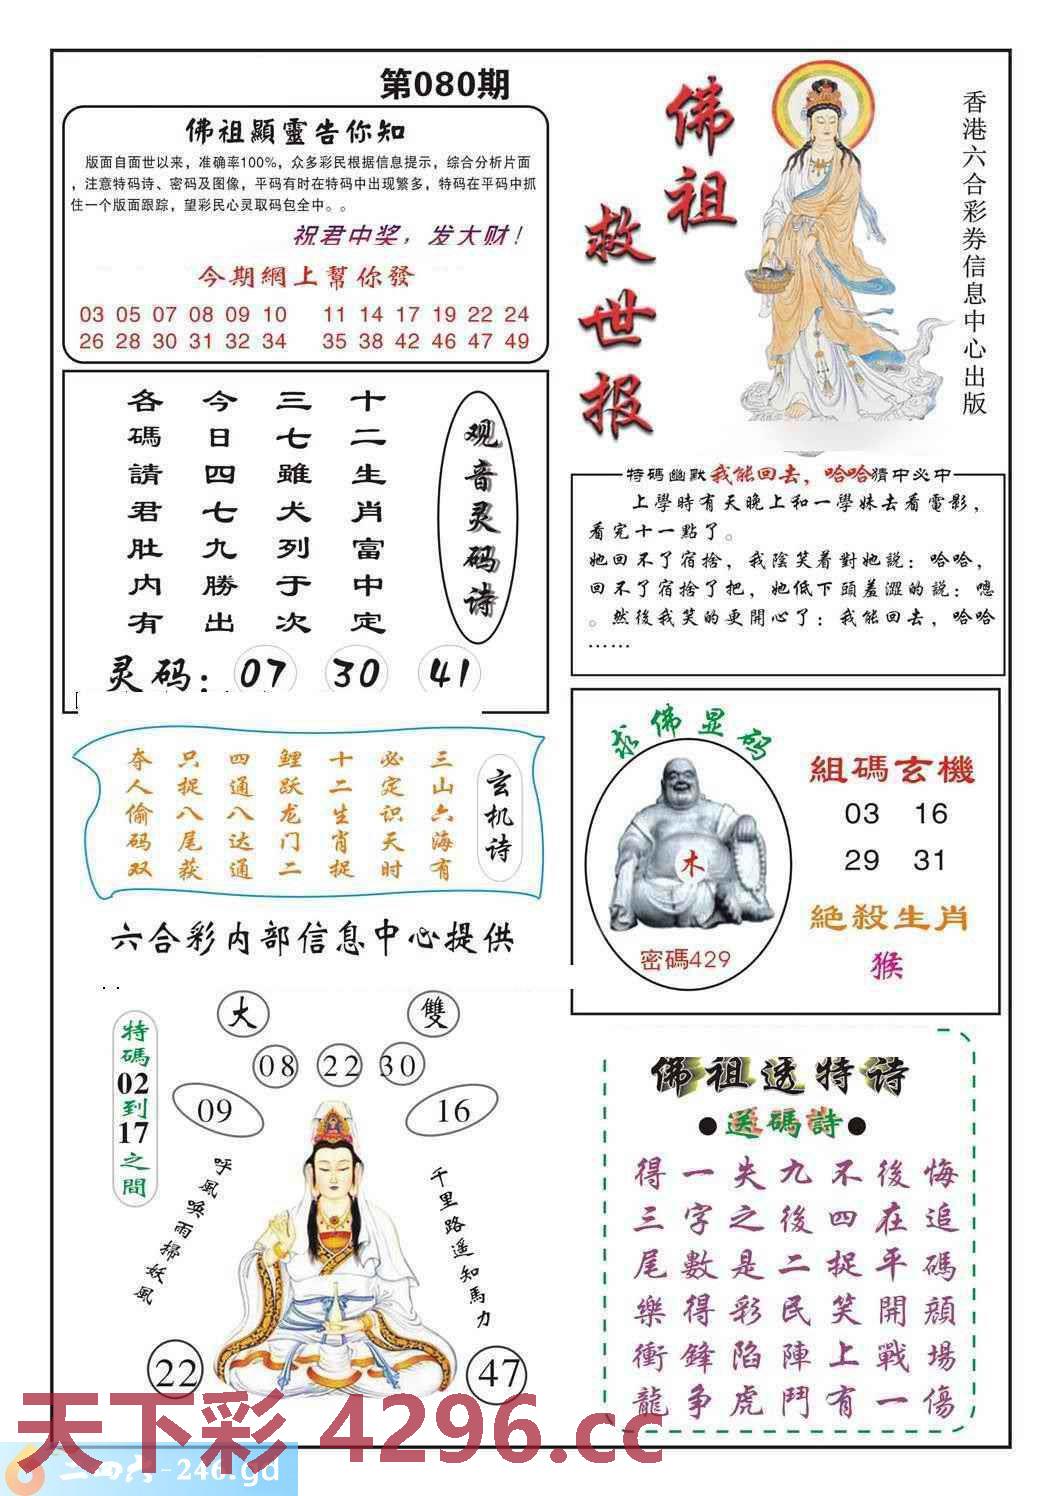 第080期
佛祖顯靈告你知
版面自面世以来，准确率100%，众多彩民根据信息提示，综合分析片面
，注意特码诗、密码及图像，平码有时在特码中出现繁多，特码在平码中抓
住一个版面跟踪，望彩民心灵取码包全中。。
祝君中奖，发大财！
今期網上幫你發
03 05 07 08 09 10 11 14 17 19 22 24
26 28 30 31 32 34 35 38 42 46 47 49
佛祖
救世报
香港六合彩券信息中心出版
观音灵码诗
十二生肖富中定
三七雖犬列于次
今日四七九勝出
各碼請君肚内有
灵码：07 30 41
特码幽默我能回去，哈哈猜中必中
上學時有天晚上和一學妹去看電影，
看完十一點了。
她回不了宿捨，我陰笑着對她説：哈哈，
回不了宿捨了把，她低下頭羞澀的説：嗯
。然後我笑的更開心了：我能回去，哈哈
……
玄机诗
三山六海有
必定识天时
十二生肖捉
鲤跃龙门二
四通八达通
只捉八尾获
夺人偷码双
六合彩内部信息中心提供
求佛显码
木
密碼429
組碼玄機
03 16
29 31
絕殺生肖
猴
特碼02到17之間
大
雙
08 22 30
09
16
呼風喚雨掃妖風
千里路遥知馬力
22
47
佛祖透特诗
●送碼詩●
得一失九不後悔
三字之後四在追
尾數是二捉平碼
樂得彩民笑開顔
衝鋒陷陣上戰場
龍争虎鬥有一傷
天下彩 4296.cc
二四六-246.gd